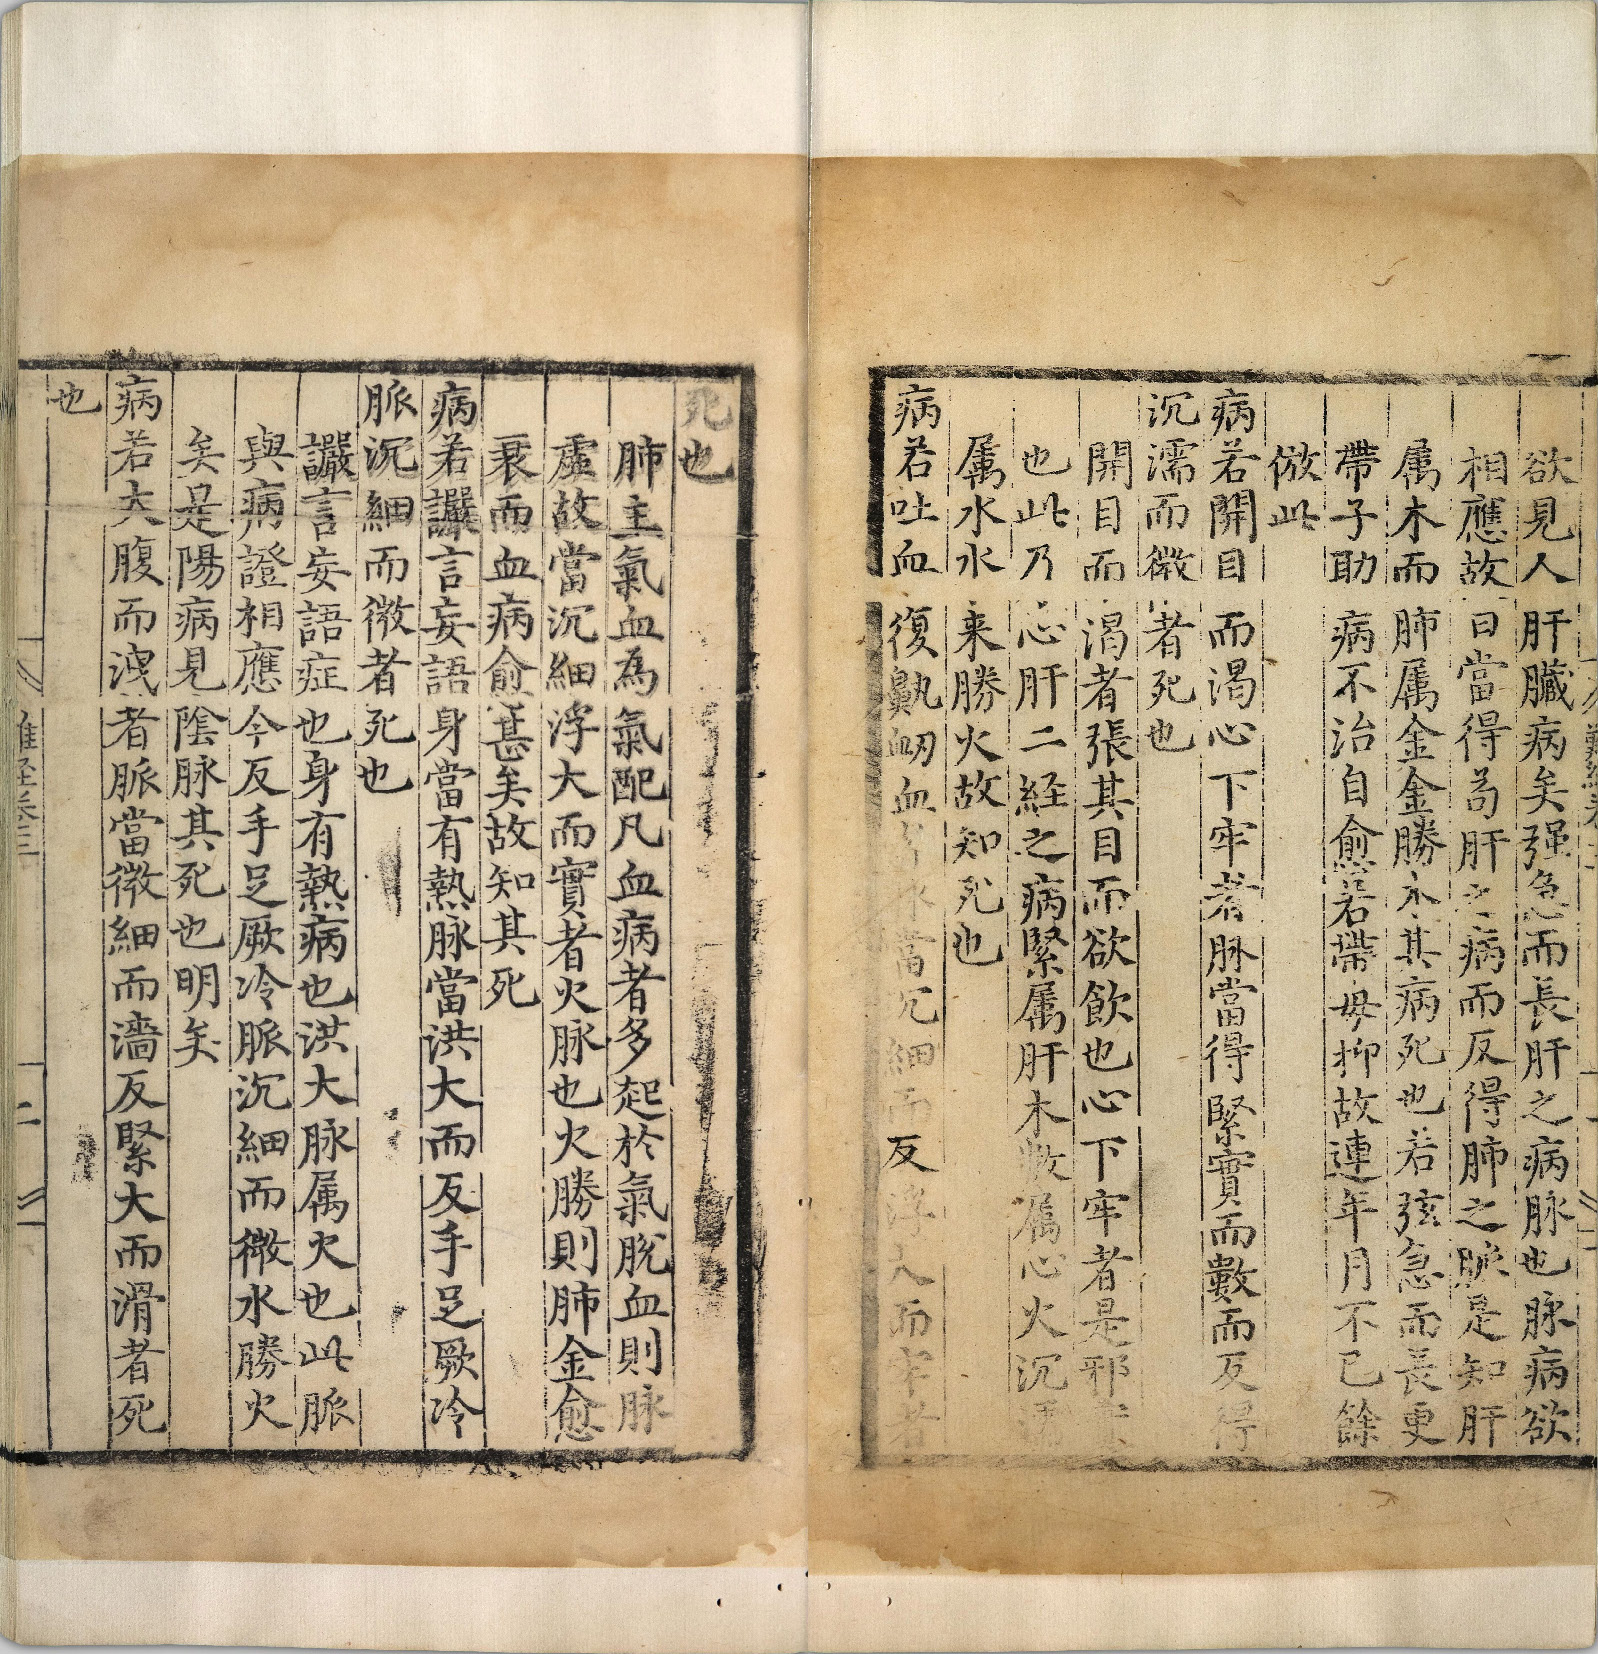 欲見人肝臟病矣强急而長肝之病脉也脉病欲
相應故曰當得茍肝之病而反得肺之脈是知肝
属木而肺属金金勝木其病死也若弦急而長更
帶子助病不治自愈若帶母抑故連年月不已餘
倣此
病若開目而渴心下牢者脉當得緊實而數而反得
沉濡而微者死也
開目而渴者張其目而欲飲也心下牢者是邪
也此乃心肝二経之病緊属肝木數属心火沉
属水水来勝火故知死也
病若吐血復鼽衂血者脉當沉細而反浮大而牢者
死也
肺主氣血為氣配凡血病者多起於氣脫血則脉
虛故當沉細浮大而實者火脉也火勝則肺金愈
衰而血病愈甚矣故知其死
病若讝言妄語身當有熱脉當洪大而反手足厥冷
脈沉細而微者死也
讝言妄語症也身有熱病也洪大脉属火也此脈
與病證相應今反手足厥冷脈沉細而微水勝火
矣是陽病見陰脉其死也明矣
病若大腹而洩者脈當微細而濇反緊大而滑者死
也
難經卷三
二